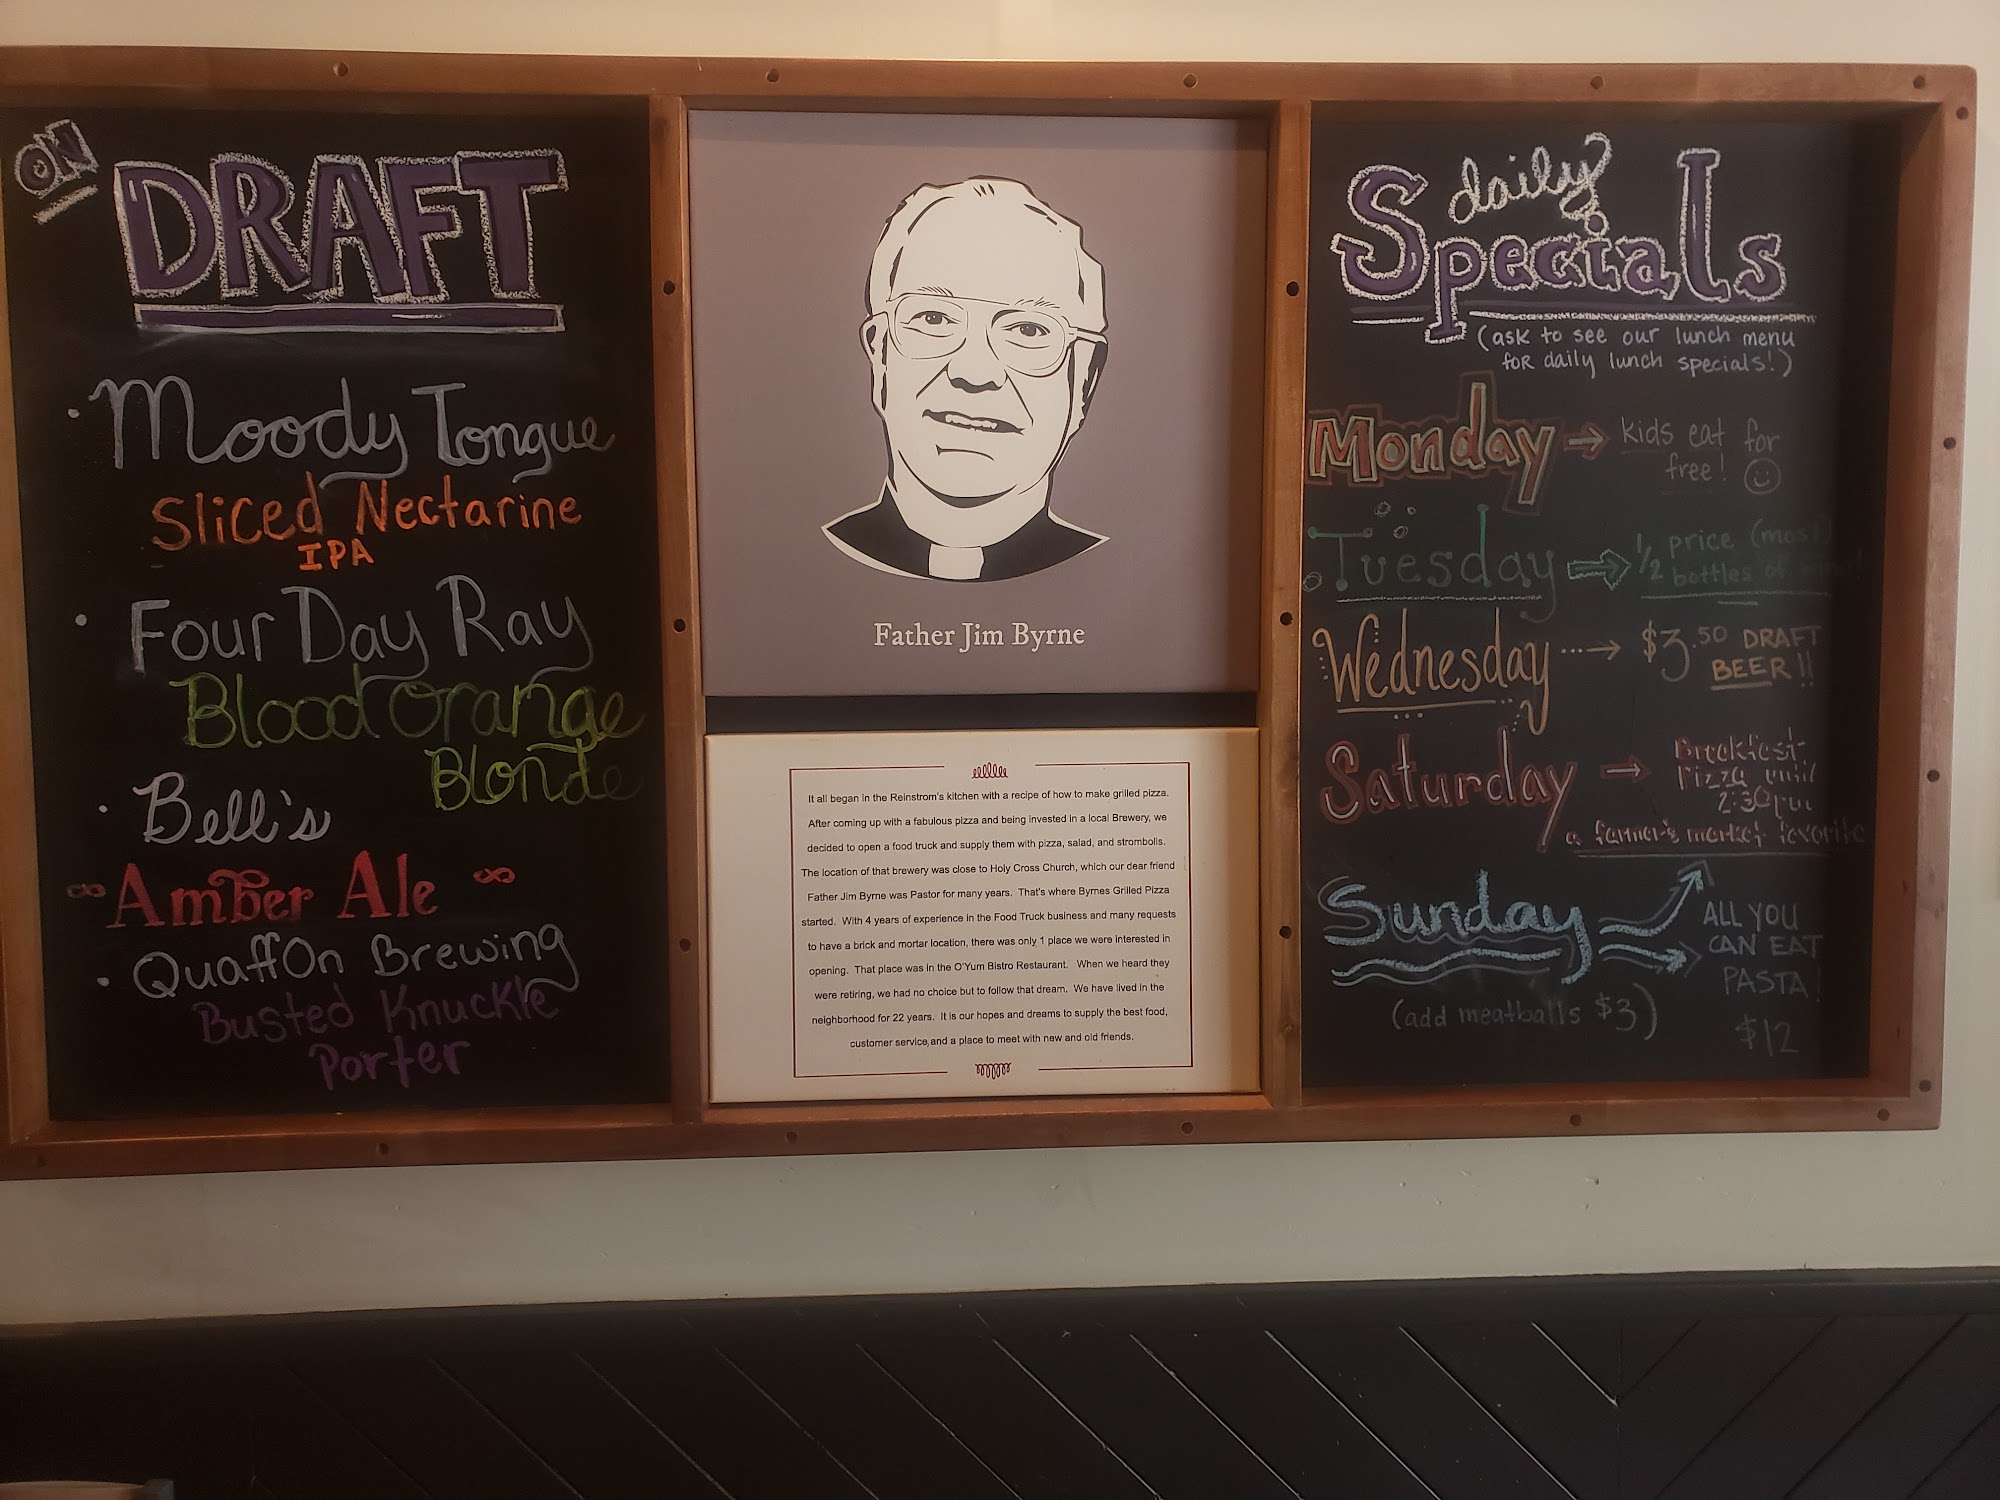 ON
DRAFT
· Moody Tongue
Sliced Nectarine
IPA
· Four Day Ray
Blood Orange
Blonde
· Bell's
Amber Ale
· QuaffOn Brewing
Busted Knuckle
Porter
Father Jim Byrne
It all began in the Reinstrom's kitchen with a recipe of how to make grilled pizza.
After coming up with a fabulous pizza and being invested in a local Brewery, we
decided to open a food truck and supply them with pizza, salad, and strombolls.
The location of that brewery was close to Holy Cross Church, which our dear friend
Father Jim Byrne was Pastor for many years. That's where Byrnes Grilled Pizza
started. With 4 years of experience in the Food Truck business and many requests
to have a brick and mortar location, there was only 1 place we were interested in
opening. That place was in the O'Yum Bistro Restaurant. When we heard they
were retiring, we had no choice but to follow that dream. We have lived in the
neighborhood for 22 years. It is our hopes and dreams to supply the best food,
customer service,and a place to meet with new and old friends.
daily
Specials
(ask to see our lunch menu
for daily lunch specials!)
Monday → kids eat for
free! ☺
Tuesday ⇒ 1/2 price (most)
bottles of
Wednesday → $3.50 DRAFT
BEER!!
Saturday → Breakfast
Pizza until
2:30pm
a farmer's market favorite
Sunday → ALL YOU
CAN EAT
PASTA!
(add meatballs $3)
$12